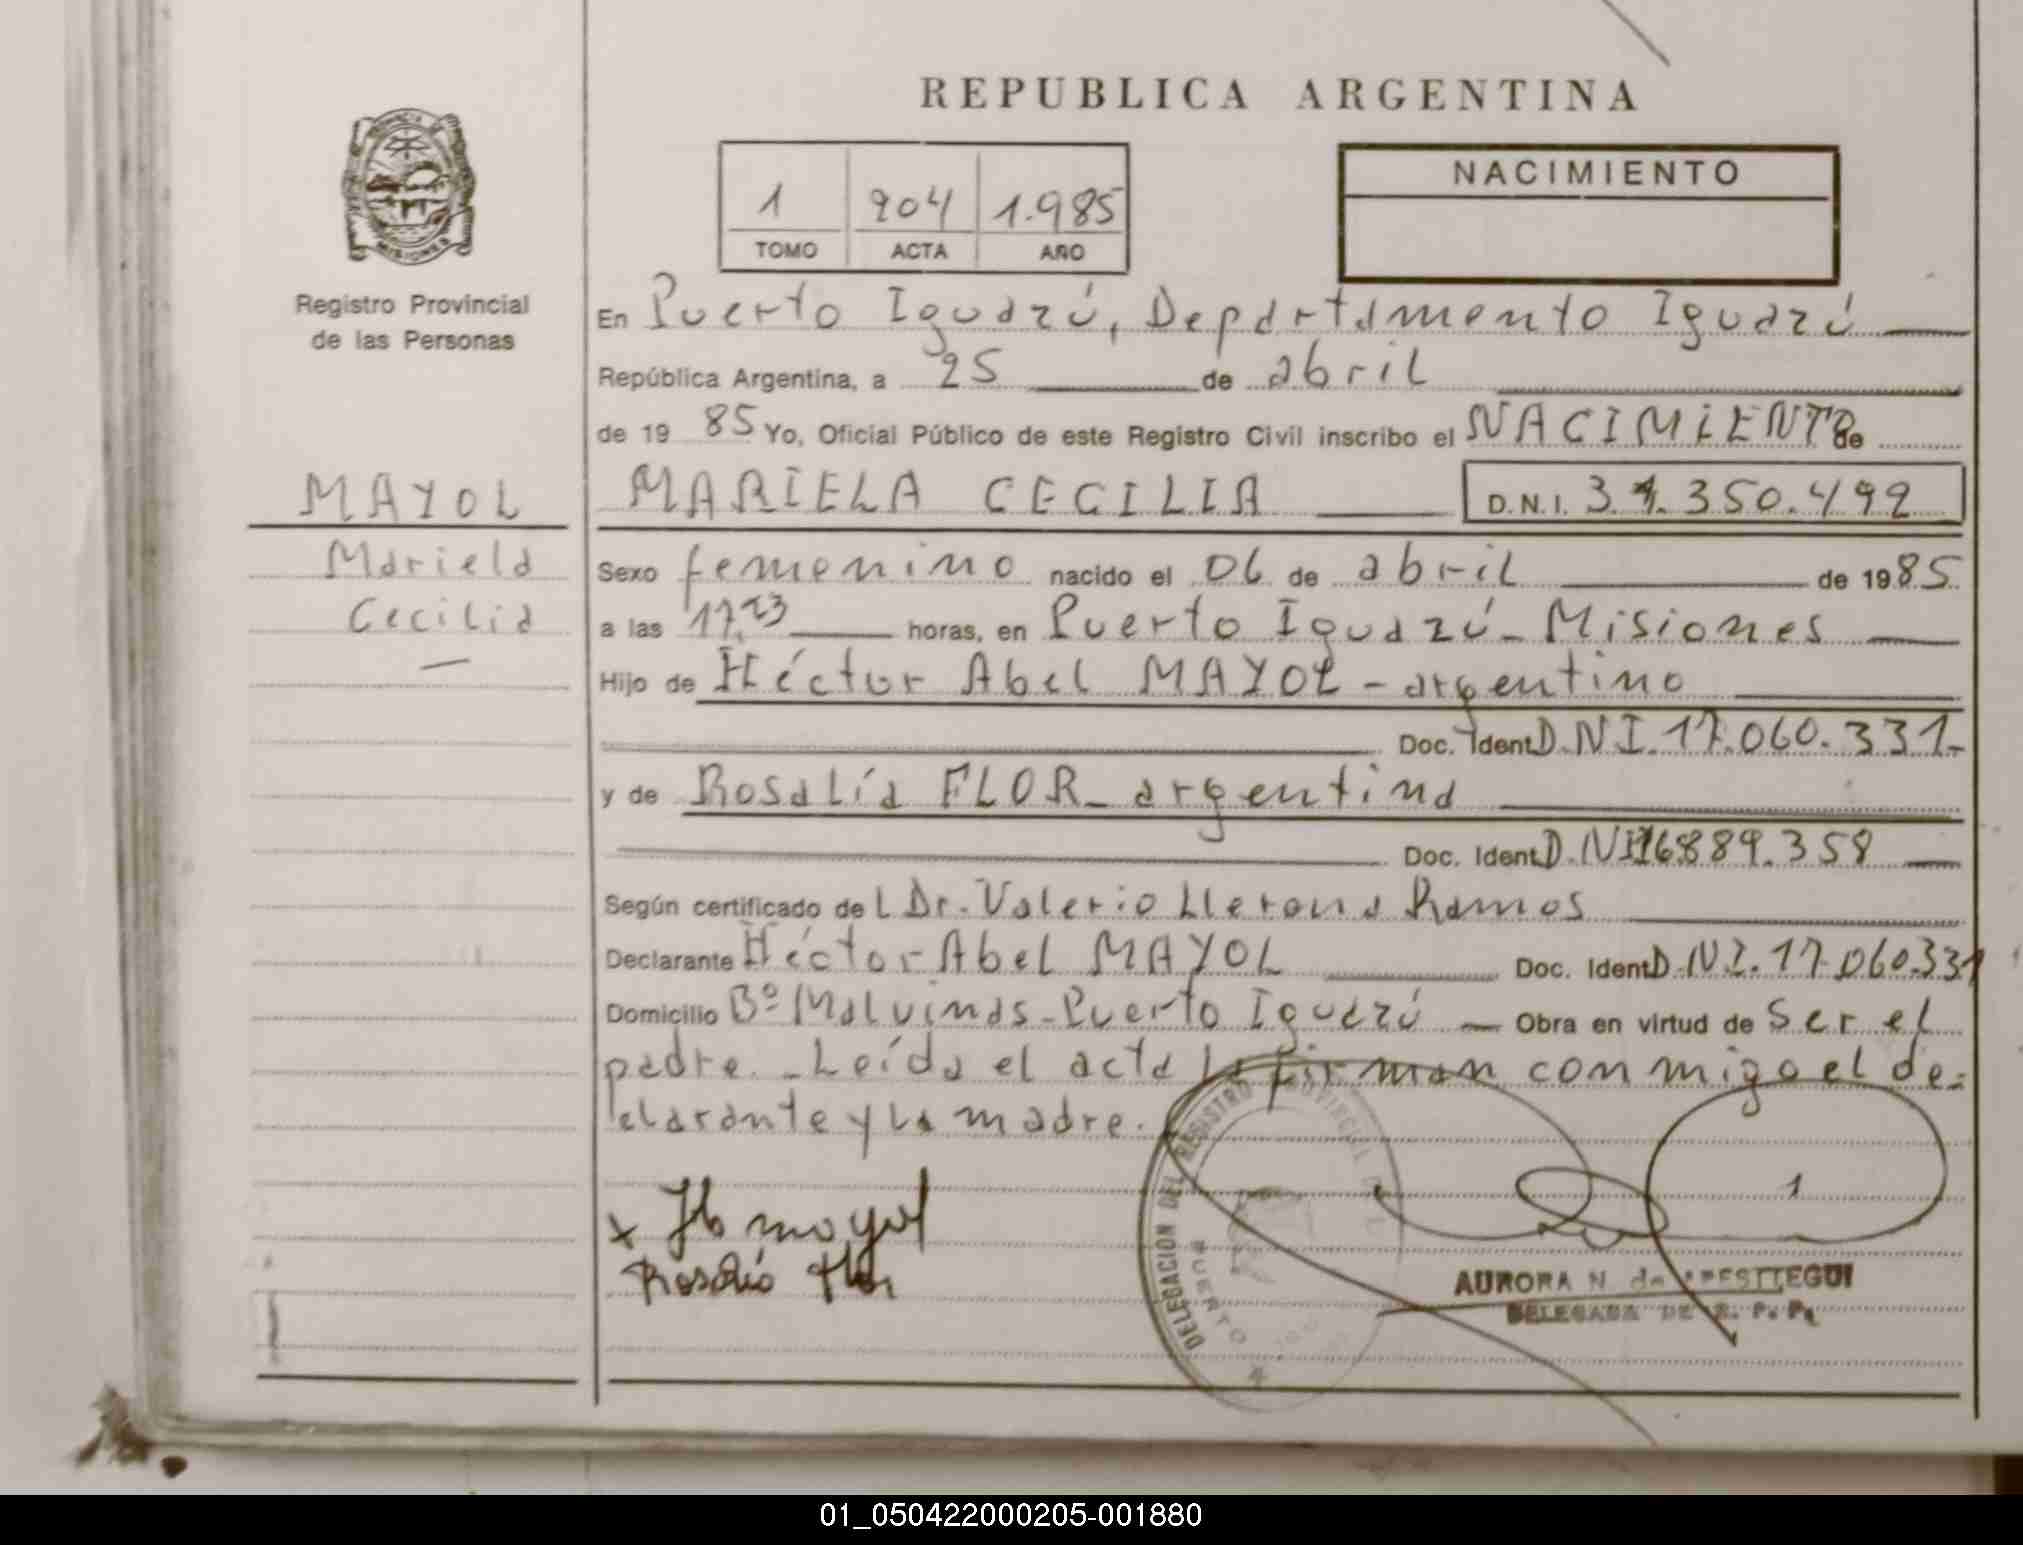 REPUBLICA ARGENTINA
PROVINCIA DE
MISIONES
Registro Provincial
de las Personas
1 204 1.985
TOMO ACTA AÑO
NACIMIENTO
En Puerto Iguazú, Departamento Iguazú
República Argentina, a 25 de abril
de 19 85 Yo, Oficial Público de este Registro Civil inscribo el NACIMIENTO de
MAYOL
Mariela
Cecilia
MARIELA CECILIA D.N.I. 31.350.492
Sexo femenino nacido el 06 de abril de 1985
a las 17,23 horas, en Puerto Iguazú - Misiones
Hijo de Héctor Abel MAYOL - argentino
Doc. Ident. D.N.I. 17.060.331.-
y de Rosalía FLOR - argentina
Doc. Ident. D.N.I 16.889.358
Según certificado del Dr. Valerio Llerona Ramos
Declarante Héctor Abel MAYOL Doc. Ident D.N.I. 17.060.331
Domicilio Bº Malvinas - Puerto Iguazú - Obra en virtud de ser el
padre. - Leída el acta la firman conmigo el de-
clarante y la madre.
x Hb mayol
Rosalía Flor
DELEGACION DEL REGISTRO PROVINCIAL DE
PUERTO
1
AURORA N. de APESTEGUI
DELEGADA DE R. P. P.
01_050422000205-001880